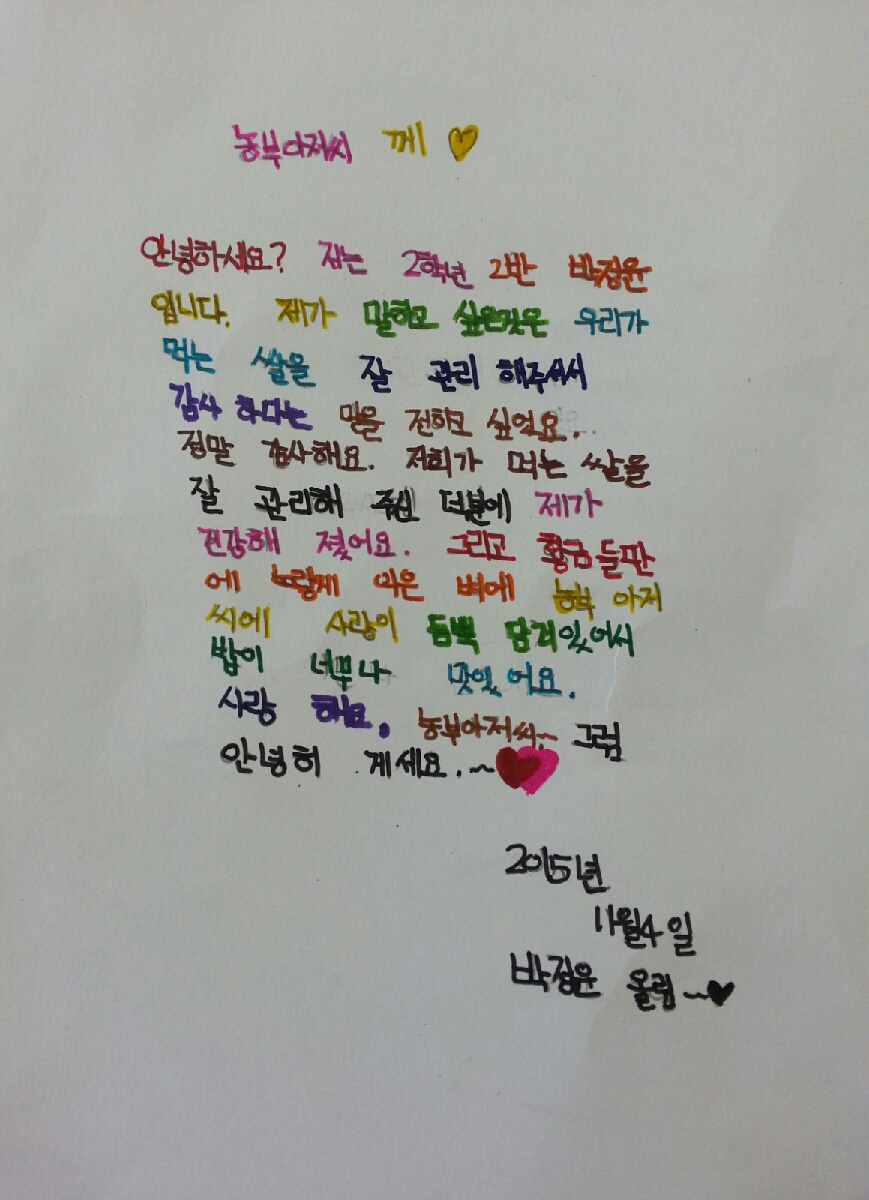 농부아저씨 께 ♥
안녕하세요? 저는 2학년 2반 박정윤
입니다. 제가 말하고 싶은것은 우리가
먹는 쌀을 잘 관리 해주셔서
감사 하다는 말을 전하고 싶었요.
정말 감사해요. 저희가 먹는 쌀을
잘 관리해 주신 덕분에 제가
건강해 졌어요. 그리고 황금들판
에 노랗게 익은 벼에 농부 아저
씨에 사랑이 듬뿍 담겨있어서
밥이 너무나 맛있어요.
사랑 해요. 농부아저씨~ 그럼
안녕히 계세요.~♥
2015년
11월4일
박정윤 올림~♥